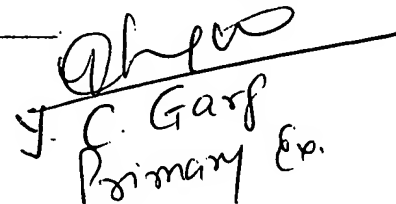 Y. C. Garg
Primary Ex.